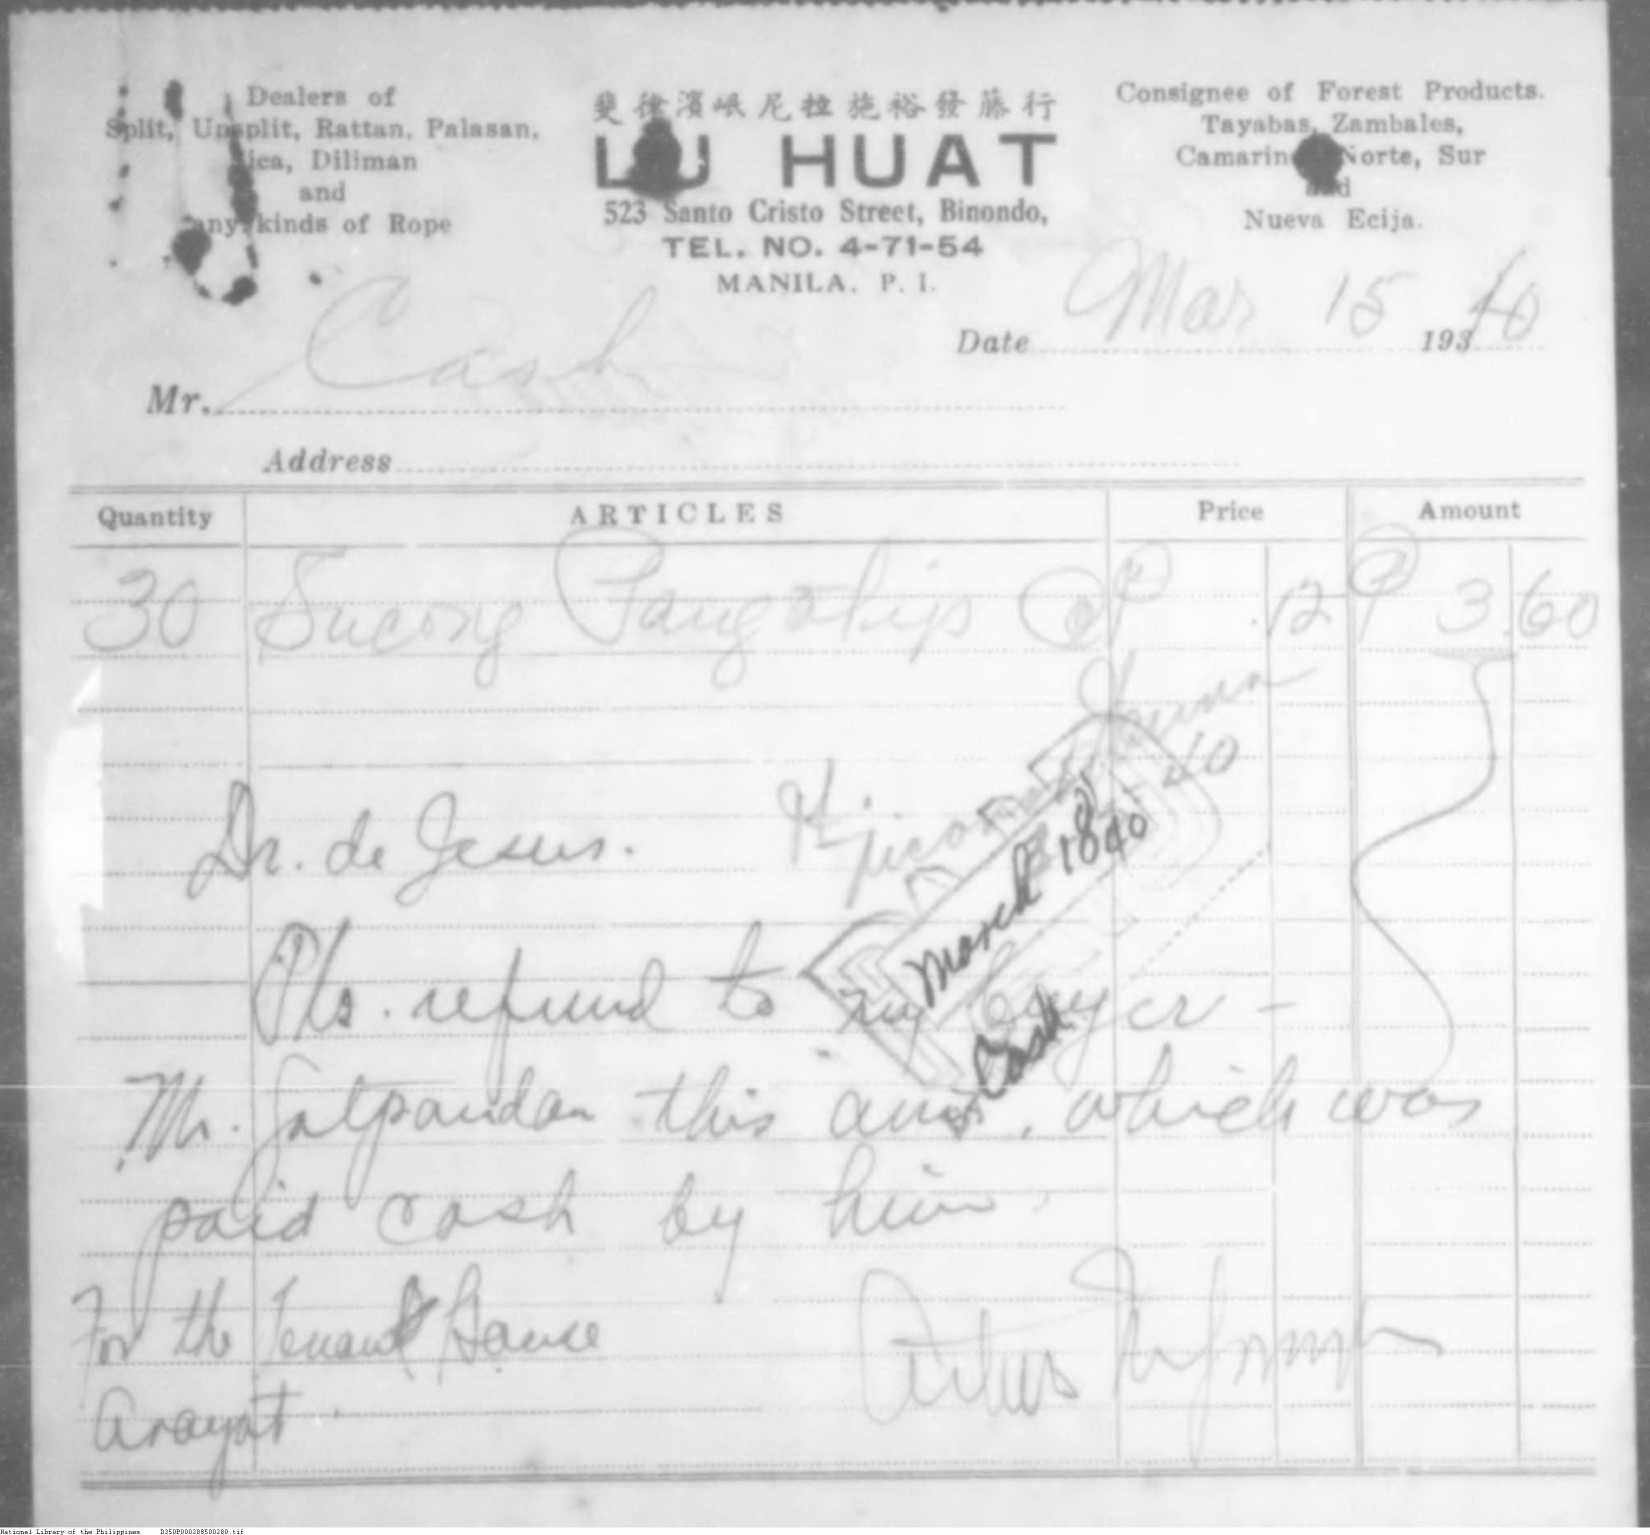 Dealers of
Split, Unsplit, Rattan, Palasan,
ica, Diliman
and
any kinds of Rope
斐律濱岷尼拉施裕發藤行
LU HUAT
523 Santo Cristo Street, Binondo,
TEL. NO. 4-71-54
MANILA, P. I.
Consignee of Forest Products.
Tayabas, Zambales,
Camarines Norte, Sur
and
Nueva Ecija.
Date Mar 15 1940
Mr. Cash
Address
Quantity ARTICLES Price Amount
30 Sucong Pangohip @ ₱ .12 ₱ 3.60
40
Dr. de Jesus.
March 18 40
Pls. refund to my buyer -
Cash
Mr. Galpandan this amt, which was
paid cash by him
For the Tenant House
Arayat.
National Library of the Philippines D350P000208500280.tif